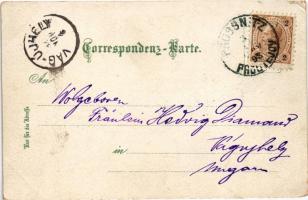 VÁG-UJHELY
PROSSNITZ
Correspondenz-Karte.
An
Wolgeboren
Fräulein Hedvig Diamand
in Vágujhely
Ungarn
Nur für die Adresse